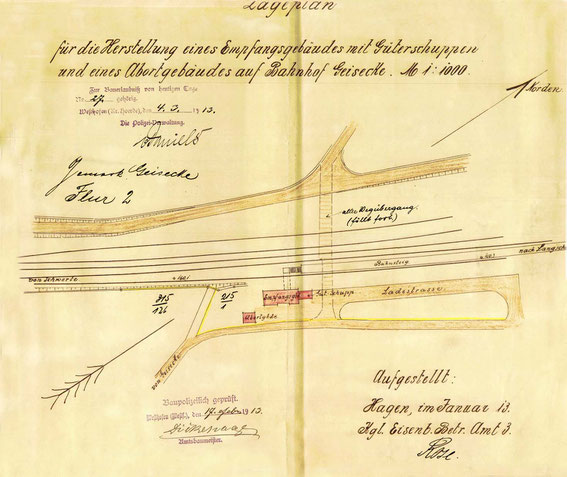 Lageplan
für die Herstellung eines Empfangsgebäudes mit Güterschuppen
und eines Abortgebäudes auf Bahnhof Geisecke. M 1:1000.
Zur Bauerlaubnis vom heutigen Tage
No. 27. gehörig.
Westhofen (Kr. Hoerde), den 4.3. 1913.
Die Polizei-Verwaltung.
Norden
Gemark Geisecke
Flur 2
alter Wegübergang
(fällt fort)
von Schwerte
Bahnsteig
nach Langsche
815
126
215
1
Empfangsgb.
Güt. Schupp.
Ladestrasse
Abortgbde
von Geisecke
Baupolizeilich geprüft.
Westhofen (Westf.), den 17. Febr. 1913.
Amtsbaumeister.
Aufgestellt:
Hagen, im Januar 13.
Kgl. Eisenb. Betr. Amt 3.